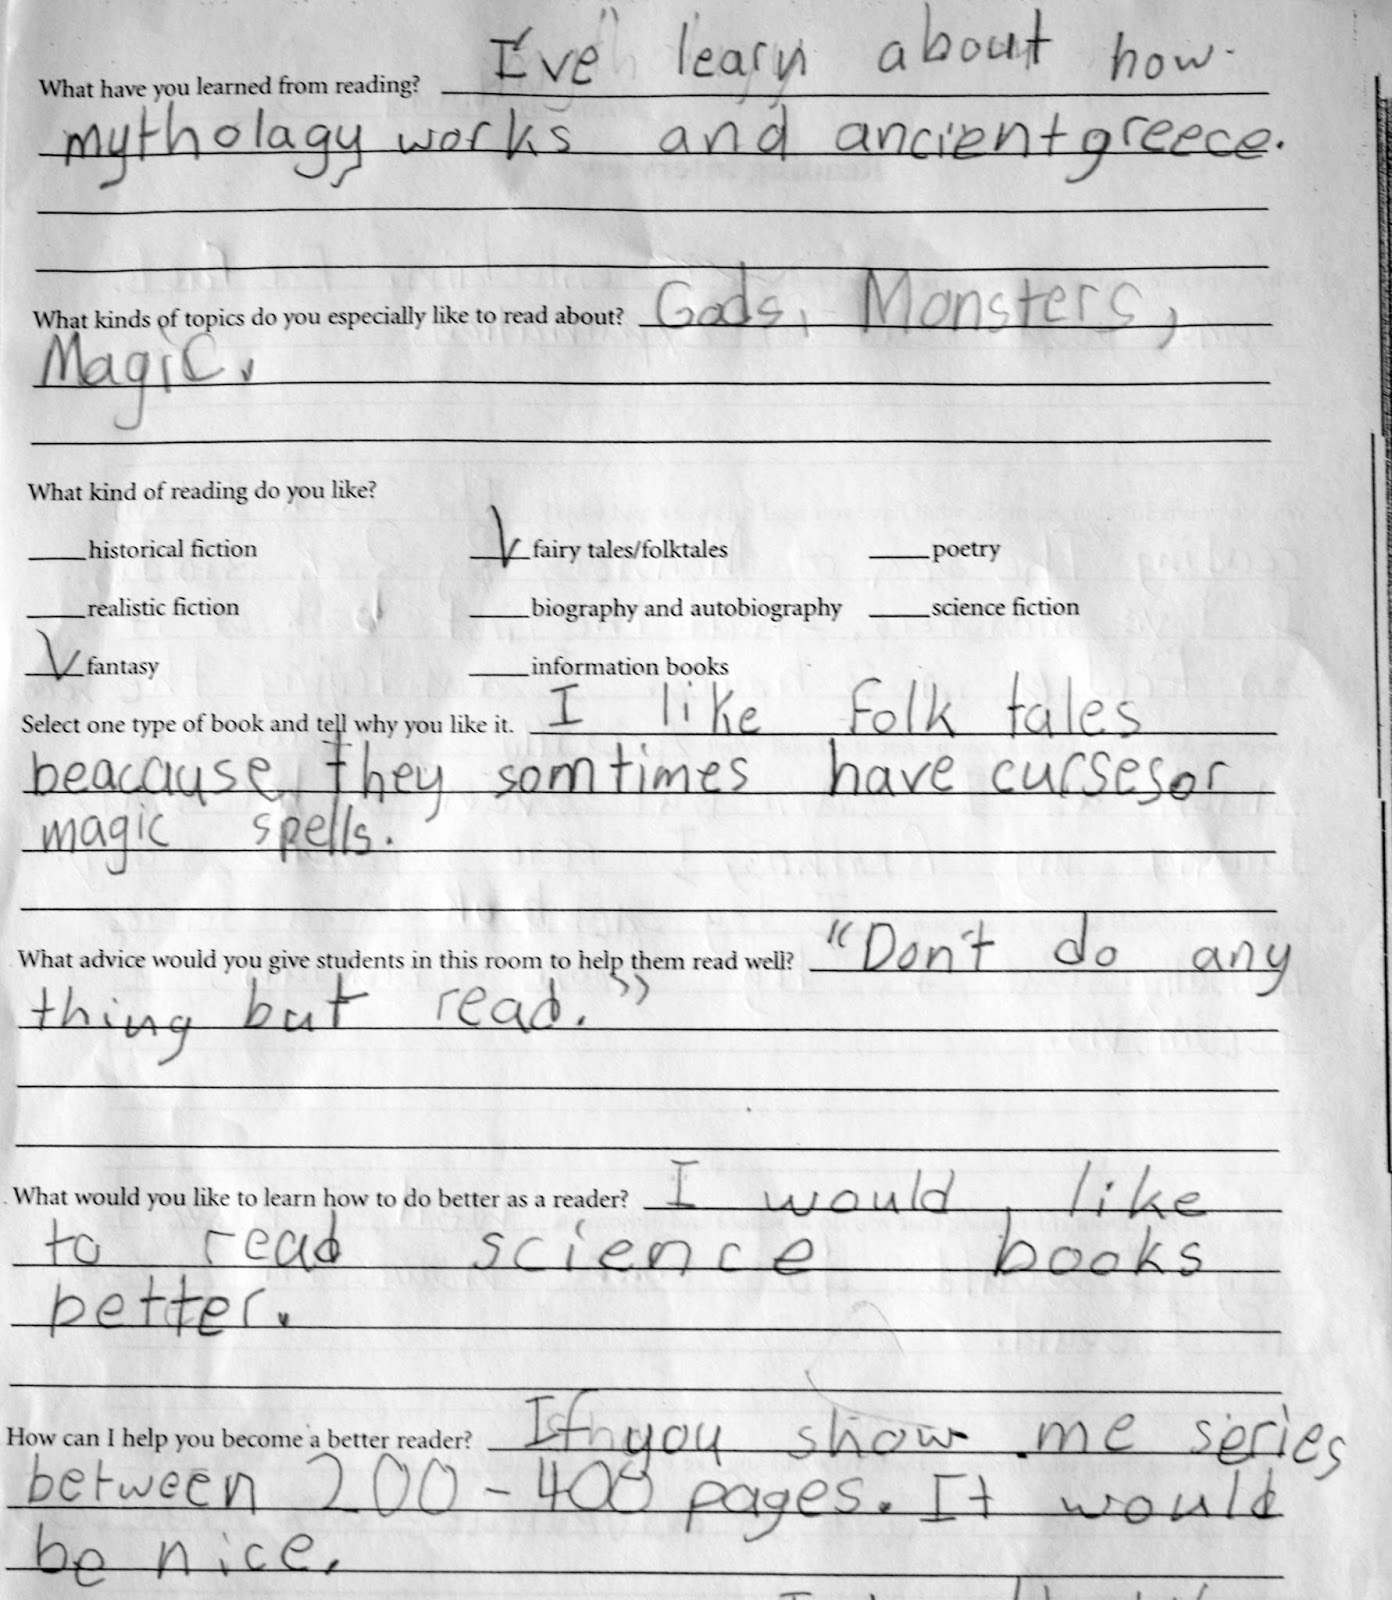 What have you learned from reading? I've learn about how
mytholagy works and ancient greece.
What kinds of topics do you especially like to read about? Gods, Monsters,
Magic.
What kind of reading do you like?
historical fiction fairy tales/folktales poetry
realistic fiction biography and autobiography science fiction
fantasy information books
Select one type of book and tell why you like it. I like folk tales
beacause they somtimes have curses or
magic spells.
What advice would you give students in this room to help them read well? "Don't do any
thing but read."
What would you like to learn how to do better as a reader? I would like
to read science books
better.
How can I help you become a better reader? If you show me series
between 200-400 pages. It would
be nice.